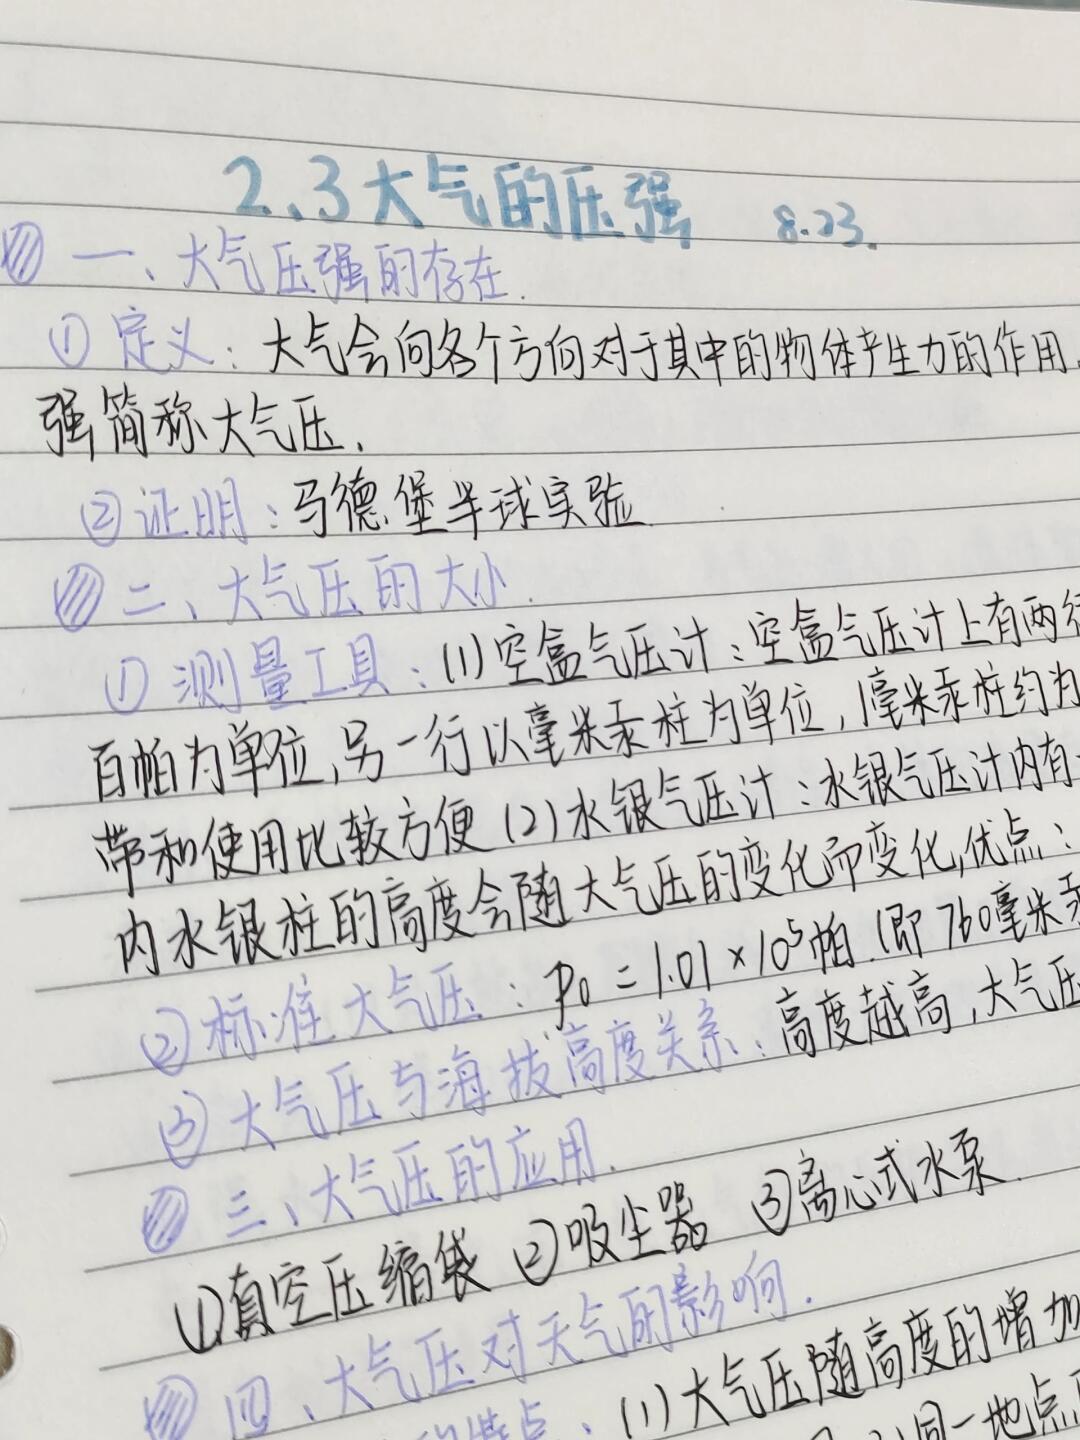 2.3大气的压强 8.23.
一、大气压强的存在.
①定义:大气会向各个方向对于其中的物体产生力的作用.
强简称大气压.
②证明:马德堡半球实验
二、大气压的大小.
①测量工具:(1)空盒气压计:空盒气压计上有两行
百帕为单位,另一行以毫米汞柱为单位,1毫米汞柱约为
带和使用比较方便(2)水银气压计:水银气压计内有
内水银柱的高度会随大气压的变化而变化,优点:
②标准大气压:p₀=1.01×10⁵帕.(即760毫米汞
③大气压与海拔高度关系:高度越高,大气压
三、大气压的应用.
①真空压缩袋 ②吸尘器 ③离心式水泵.
四、大气压对天气的影响.
的特点:(1)大气压随高度的增加
同一地点